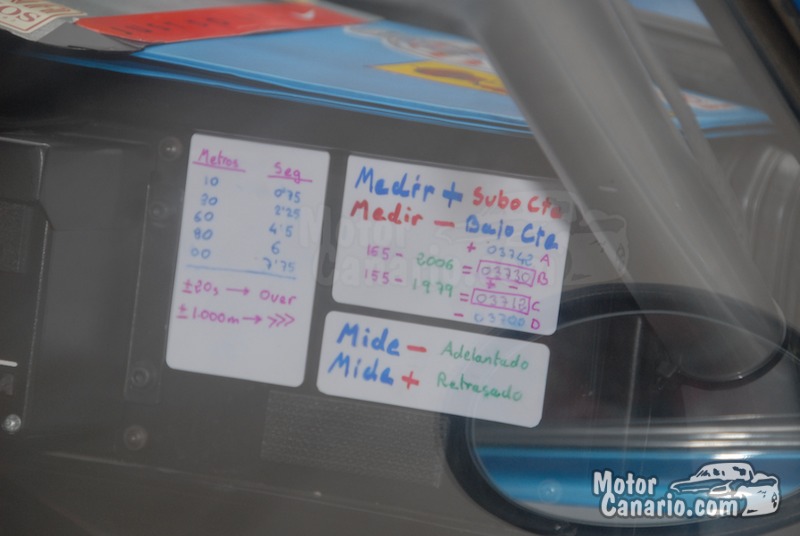 Metros Seg
10 0'75
30 2'25
60 4'5
80 6
00 7'75
±20s → Over
±1.000m → >>>
Medir + Subo Cta
Medir - Bajo Cta
+ 03742 A
165 - 2006 = 03730 B
+ -
155 - 1979 = 03712 C
- 03700 D
Mide - Adelantado
Mide + Retrasado
Motor
Canario
Motor
Canario.com